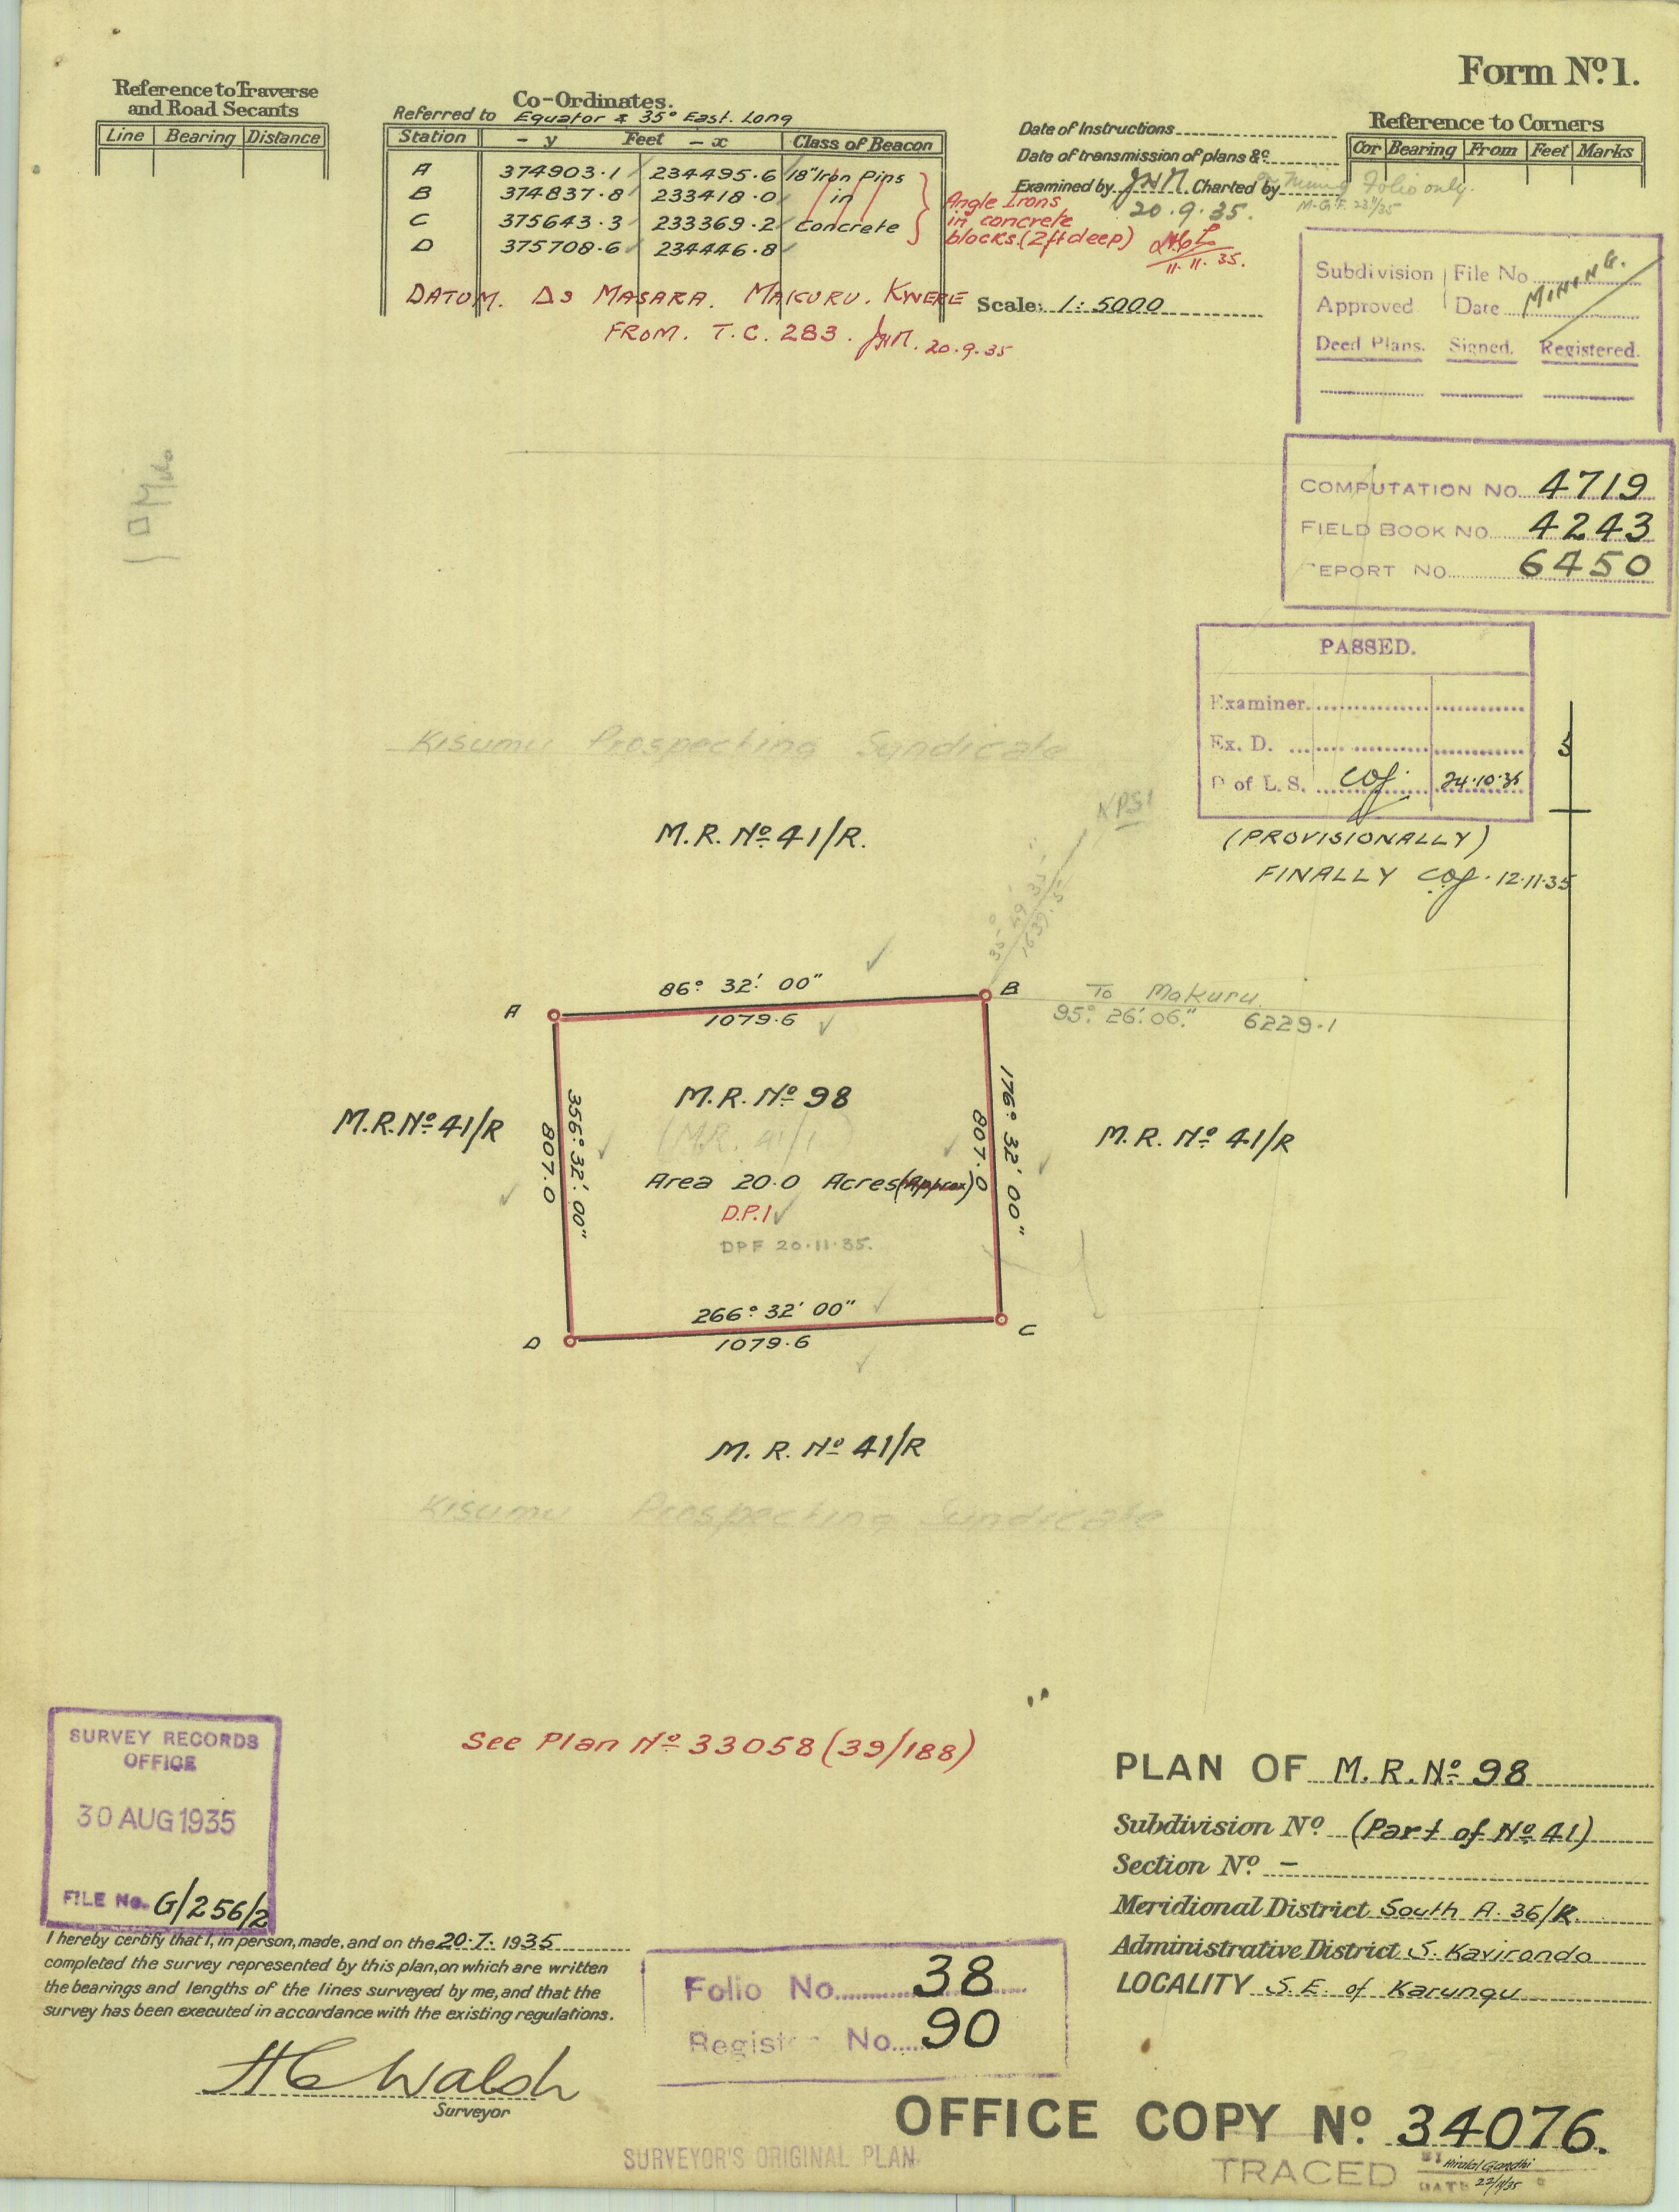 Form Nº 1.
Reference to Traverse
and Road Secants
Line Bearing Distance
Co-Ordinates.
Referred to Equator & 35° East. Long
Station - y Feet - x Class of Beacon
A 374903.1 234495.6 18" Iron Pins
B 374837.8 233418.0 in
C 375643.3 233369.2 Concrete
D 375708.6 234446.8
Angle Irons
in concrete
blocks.(2ft deep)
11.11.35.
DATUM. Δs MASARA. MAKURU. KWERE
FROM. T.C. 283. JHM. 20.9.35
Date of Instructions
Date of transmission of plans &c.
Examined by JHM. Charted by Mining Folio only.
20.9.35.
Scale: 1:5000
Reference to Corners
Cor Bearing From Feet Marks
Subdivision File No
Approved Date
MINING.
Deed Plans. Signed. Registered.
COMPUTATION NO. 4719
FIELD BOOK NO. 4243
REPORT NO. 6450
PASSED.
Examiner.
Ex. D.
D of L.S. 24.10.35
(PROVISIONALLY)
FINALLY 12.11.35
Kisumu Prospecting Syndicate
KPS1
M.R. Nº 41/R.
35° 49' 33"
1637.5
A
86° 32' 00"
1079.6
B
To Makuru.
95° 26' 06" 6229.1
M.R. Nº 41/R
356° 32' 00"
807.0
M.R. Nº 98
(M.R. 41/1)
Area 20.0 Acres (Approx)
D.P.1
DPF 20.11.35.
807.0
176° 32' 00"
M.R. Nº 41/R
266° 32' 00"
1079.6
D
C
M.R. Nº 41/R
Kisumu Prospecting Syndicate
See Plan Nº 33058 (39/188)
SURVEY RECORDS
OFFICE
30 AUG 1935
FILE No. G/256/2
I hereby certify that I, in person, made, and on the 20.7.1935
completed the survey represented by this plan, on which are written
the bearings and lengths of the lines surveyed by me, and that the
survey has been executed in accordance with the existing regulations.
H C Walsh
Surveyor
Folio No. 38
Register No. 90
PLAN OF M.R. Nº 98
Subdivision Nº (Part of Nº 41)
Section Nº -
Meridional District South A. 36/R.
Administrative District S. Kavirondo
LOCALITY S.E. of Karungu
OFFICE COPY Nº 34076.
SURVEYOR'S ORIGINAL PLAN.
TRACED BY Hiralal Gandhi
DATE 22/11/35